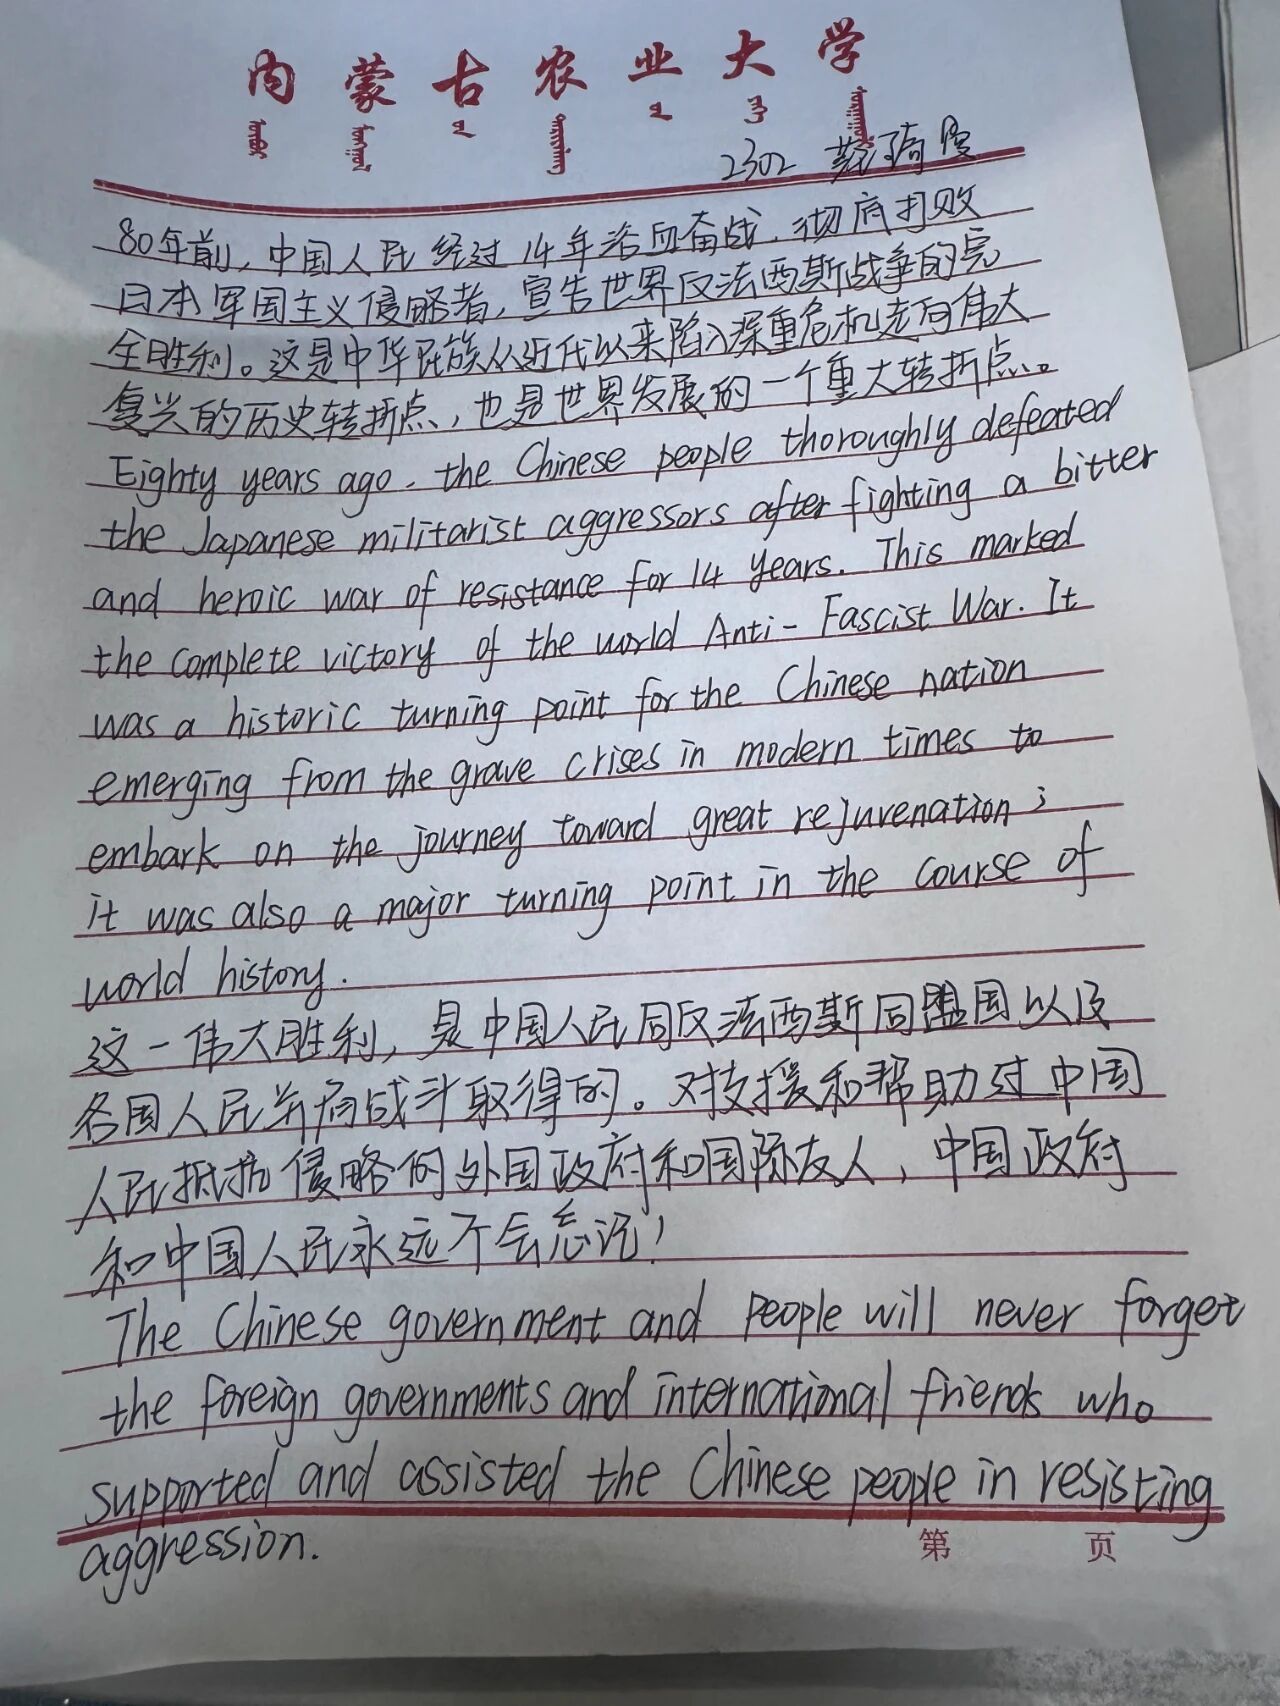 内蒙古农业大学
2302
80年前，中国人民经过14年浴血奋战，彻底打败
日本军国主义侵略者，宣告世界反法西斯战争的完
全胜利。这是中华民族从近代以来陷入深重危机走向伟大
复兴的历史转折点，也是世界发展的一个重大转折点。
Eighty years ago, the Chinese people thoroughly defeated
the Japanese militarist aggressors after fighting a bitter
and heroic war of resistance for 14 years. This marked
the complete victory of the world Anti-Fascist War. It
was a historic turning point for the Chinese nation
emerging from the grave crises in modern times to
embark on the journey toward great rejuvenation;
it was also a major turning point in the course of
world history.
这一伟大胜利，是中国人民同反法西斯同盟国以及
各国人民并肩战斗取得的。对支援和帮助过中国
人民抵抗侵略的外国政府和国际友人，中国政府
和中国人民永远不会忘记！
The Chinese government and people will never forget
the foreign governments and international friends who
supported and assisted the Chinese people in resisting
aggression.
第 页